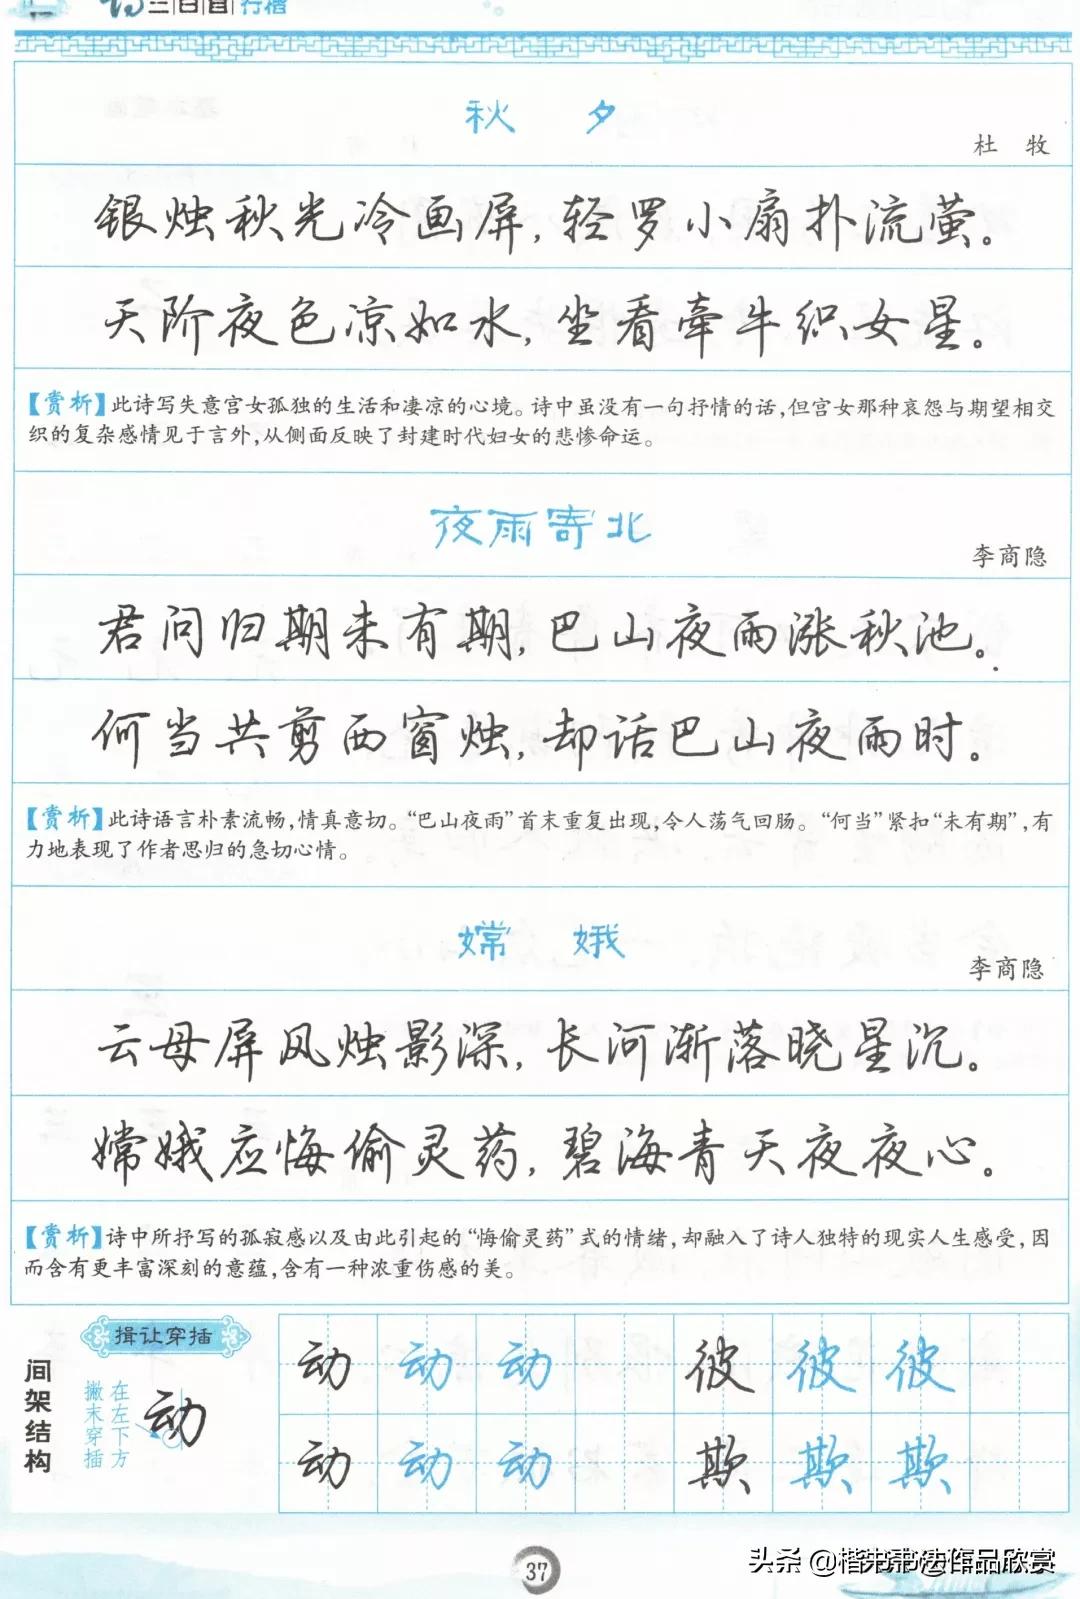 诗三百首 行楷
秋 夕
杜 牧
银烛秋光冷画屏,轻罗小扇扑流萤。
天阶夜色凉如水,坐看牵牛织女星。
【赏析】此诗写失意宫女孤独的生活和凄凉的心境。诗中虽没有一句抒情的话,但宫女那种哀怨与期望相交
织的复杂感情见于言外,从侧面反映了封建时代妇女的悲惨命运。
夜雨寄北
李商隐
君问归期未有期,巴山夜雨涨秋池。
何当共剪西窗烛,却话巴山夜雨时。
【赏析】此诗语言朴素流畅,情真意切。“巴山夜雨”首末重复出现,令人荡气回肠。“何当”紧扣“未有期”,有
力地表现了作者思归的急切心情。
嫦 娥
李商隐
云母屏风烛影深,长河渐落晓星沉。
嫦娥应悔偷灵药,碧海青天夜夜心。
【赏析】诗中所抒写的孤寂感以及由此引起的“悔偷灵药”式的情绪,却融入了诗人独特的现实人生感受,因
而含有更丰富深刻的意蕴,含有一种浓重伤感的美。
间架结构
揖让穿插
在左下方
撇末穿插
动
动 动 动 彼 彼 彼
动 动 动 欺 欺 欺
37
头条 @楷书书法作品欣赏